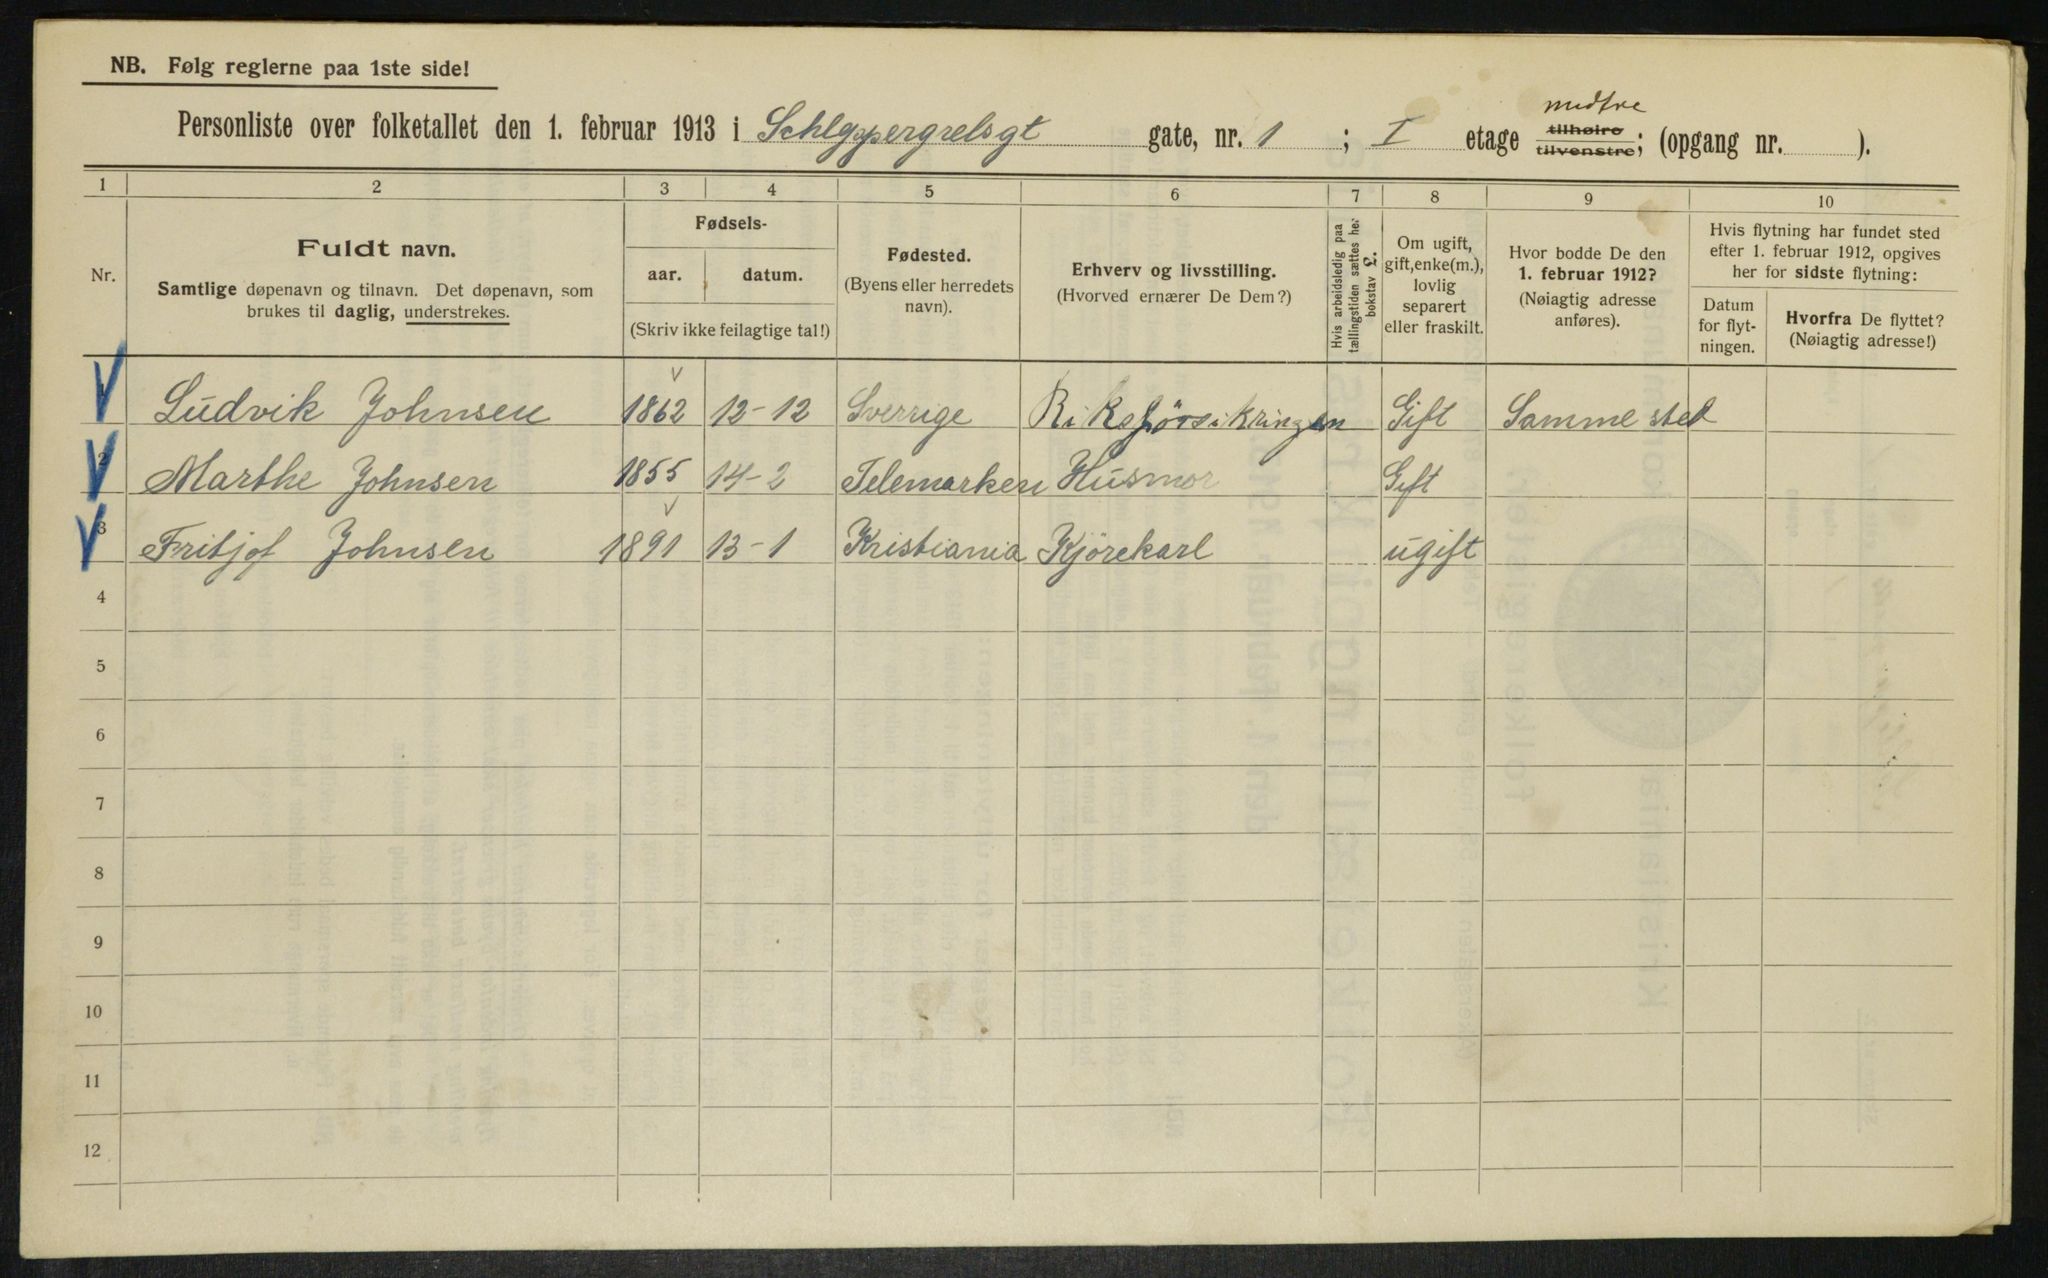 NB. Følg reglerne paa 1ste side!
Personliste over folketallet den 1. februar 1913 i Schleppergrelsgt gate, nr. 1 ; I etage midtre tilhøire tilvenstre; (opgang nr. ).
1 2 3 4 5 6 7 8 9 10
Nr.
Fuldt navn.
Samtlige døpenavn og tilnavn. Det døpenavn, som
brukes til daglig, understrekes.
Fødsels-
aar. datum.
(Skriv ikke feilagtige tal!)
Fødested.
(Byens eller herredets
navn).
Erhverv og livsstilling.
(Hvorved ernærer De Dem?)
Hvis arbeidsledig paa
tællingstiden sættes her
bokstav L.
Om ugift,
gift, enke(m.),
lovlig
separert
eller fraskilt.
Hvor bodde De den
1. februar 1912?
(Nøiagtig adresse
anføres).
Hvis flytning har fundet sted
efter 1. februar 1912, opgives
her for sidste flytning:
Datum
for flyt-
ningen.
Hvorfra De flyttet?
(Nøiagtig adresse!)
1 Ludvik Johnsen 1862 12-12 Sverrige Riksforsikringen Gift Samme sted
2 Marthe Johnsen 1855 14-2 Telemarken Husmor Gift
3 Fritjof Johnsen 1891 13-1 Kristiania Kjörekarl ugift
4
5
6
7
8
9
10
11
12